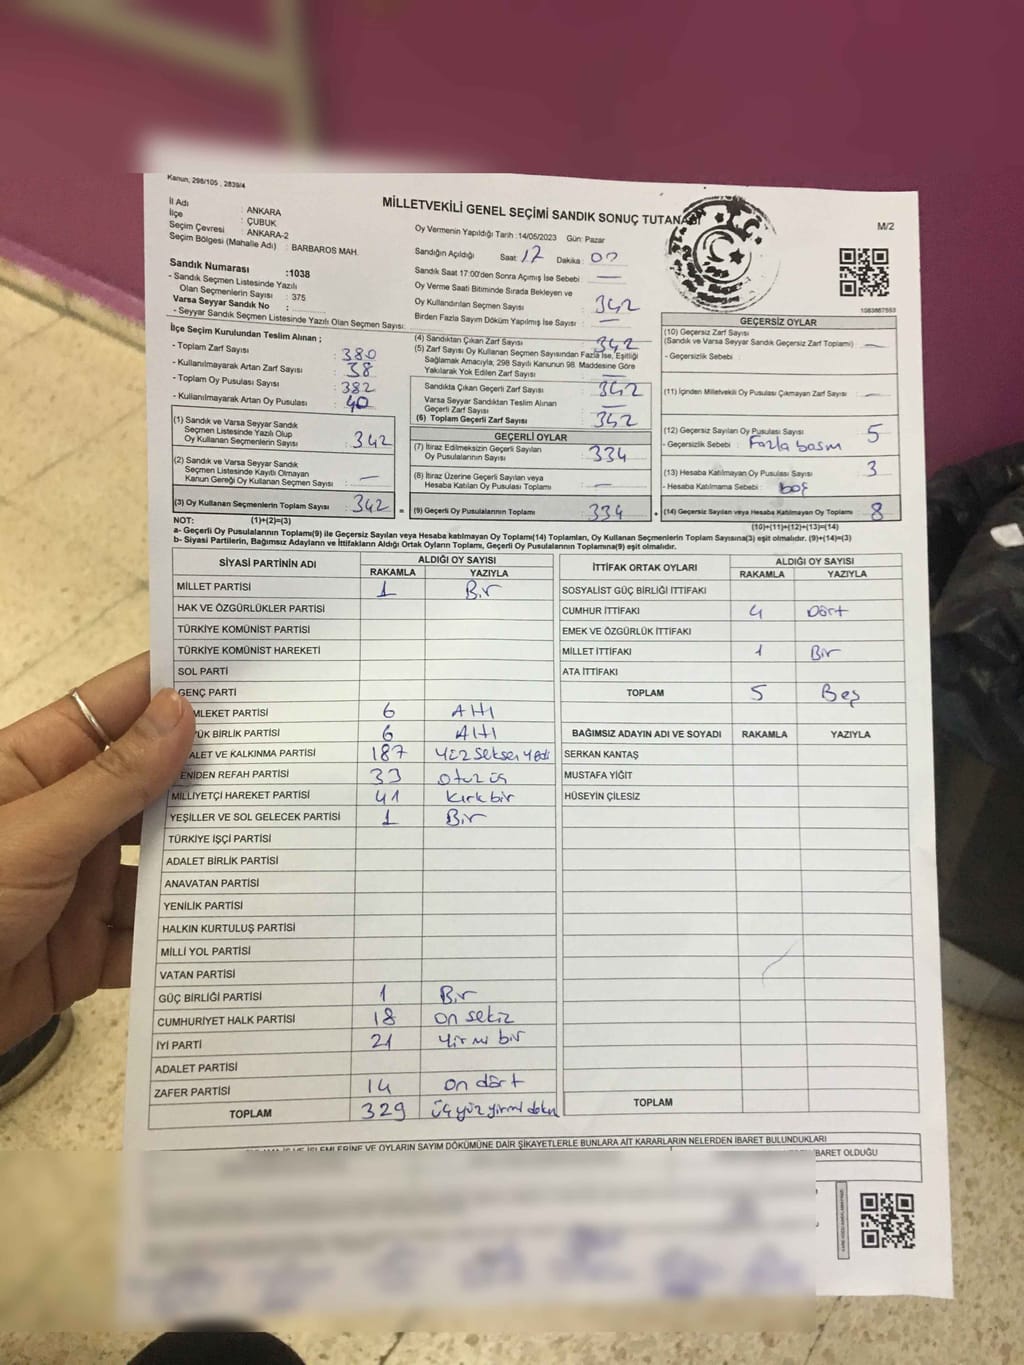 Kanun, 298/105 , 2839/4
MİLLETVEKİLİ GENEL SEÇİMİ SANDIK SONUÇ TUTANAĞI
M/2
İl Adı : ANKARA
İlçe : ÇUBUK
Seçim Çevresi : ANKARA-2
Seçim Bölgesi (Mahalle Adı) : BARBAROS MAH.
Sandık Numarası :1038
- Sandık Seçmen Listesinde Yazılı
Olan Seçmenlerin Sayısı : 375
Varsa Seyyar Sandık No :
- Seyyar Sandık Seçmen Listesinde Yazılı Olan Seçmen Sayısı:
Oy Vermenin Yapıldığı Tarih :14/05/2023 Gün: Pazar
Sandığın Açıldığı Saat: 17 Dakika :
Sandık Saat 17:00'den Sonra Açılmış İse Sebebi : —
Oy Verme Saati Bitiminde Sırada Bekleyen ve
Oy Kullandırılan Seçmen Sayısı : 342
Birden Fazla Sayım Döküm Yapılmış İse Sayısı : —
1083867553
İlçe Seçim Kurulundan Teslim Alınan ;
- Toplam Zarf Sayısı : 380
- Kullanılmayarak Artan Zarf Sayısı : 38
- Toplam Oy Pusulası Sayısı : 382
- Kullanılmayarak Artan Oy Pusulası : 40
(1) Sandık ve Varsa Seyyar Sandık
Seçmen Listesinde Yazılı Olup
Oy Kullanan Seçmenlerin Sayısı : 342
(2) Sandık ve Varsa Seyyar Sandık
Seçmen Listesinde Kayıtlı Olmayan
Kanun Gereği Oy Kullanan Seçmen Sayısı : —
(3) Oy Kullanan Seçmenlerin Toplam Sayısı : 342 =
(4) Sandıktan Çıkan Zarf Sayısı : 342
(5) Zarf Sayısı Oy Kullanan Seçmen Sayısından Fazla İse, Eşitliği
Sağlamak Amacıyla, 298 Sayılı Kanunun 98. Maddesine Göre
Yakılarak Yok Edilen Zarf Sayısı : —
Sandıkta Çıkan Geçerli Zarf Sayısı : 342
Varsa Seyyar Sandıktan Teslim Alınan
Geçerli Zarf Sayısı : —
(6) Toplam Geçerli Zarf Sayısı : 342
GEÇERLİ OYLAR
(7) İtiraz Edilmeksizin Geçerli Sayılan
Oy Pusulalarının Sayısı : 334
(8) İtiraz Üzerine Geçerli Sayılan veya
Hesaba Katılan Oy Pusulası Toplamı : —
(9) Geçerli Oy Pusulalarının Toplamı : 334 +
GEÇERSİZ OYLAR
(10) Geçersiz Zarf Sayısı
(Sandık ve Varsa Seyyar Sandık Geçersiz Zarf Toplamı) : —
- Geçersizlik Sebebi :
(11) İçinden Milletvekili Oy Pusulası Çıkmayan Zarf Sayısı : —
(12) Geçersiz Sayılan Oy Pusulası Sayısı : 5
- Geçersizlik Sebebi : Fazla basım
(13) Hesaba Katılmayan Oy Pusulası Sayısı : 3
- Hesaba Katılmama Sebebi : boş
(14) Geçersiz Sayılan veya Hesaba Katılmayan Oy Toplamı : 8
NOT: (1)+(2)=(3)
(10)+(11)+(12)+(13)=(14)
a- Geçerli Oy Pusulalarının Toplamı(9) ile Geçersiz Sayılan veya Hesaba katılmayan Oy Toplamı(14) Toplamları, Oy Kullanan Seçmenlerin Toplam Sayısına(3) eşit olmalıdır. (9)+(14)=(3)
b- Siyasi Partilerin, Bağımsız Adayların ve İttifakların Aldığı Ortak Oyların Toplamı, Geçerli Oy Pusulalarının Toplamına(9) eşit olmalıdır.
SİYASİ PARTİNİN ADI ALDIĞI OY SAYISI
RAKAMLA YAZIYLA
MİLLET PARTİSİ 1 Bir
HAK VE ÖZGÜRLÜKLER PARTİSİ
TÜRKİYE KOMÜNİST PARTİSİ
TÜRKİYE KOMÜNİST HAREKETİ
SOL PARTİ
GENÇ PARTİ
MLEKET PARTİSİ 6 Altı
ÜK BİRLİK PARTİSİ 6 Altı
ALET VE KALKINMA PARTİSİ 187 Yüz seksen yedi
ENİDEN REFAH PARTİSİ 33 otuz üç
MİLLİYETÇİ HAREKET PARTİSİ 41 kırk bir
YEŞİLLER VE SOL GELECEK PARTİSİ 1 Bir
TÜRKİYE İŞÇİ PARTİSİ
ADALET BİRLİK PARTİSİ
ANAVATAN PARTİSİ
YENİLİK PARTİSİ
HALKIN KURTULUŞ PARTİSİ
MİLLİ YOL PARTİSİ
VATAN PARTİSİ
GÜÇ BİRLİĞİ PARTİSİ 1 Bir
CUMHURİYET HALK PARTİSİ 18 on sekiz
İYİ PARTİ 21 Yirmi bir
ADALET PARTİSİ
ZAFER PARTİSİ 14 on dört
TOPLAM 329 üç yüz yirmi dokuz
İTTİFAK ORTAK OYLARI ALDIĞI OY SAYISI
RAKAMLA YAZIYLA
SOSYALİST GÜÇ BİRLİĞİ İTTİFAKI
CUMHUR İTTİFAKI 4 Dört
EMEK VE ÖZGÜRLÜK İTTİFAKI
MİLLET İTTİFAKI 1 Bir
ATA İTTİFAKI
TOPLAM 5 Beş
BAĞIMSIZ ADAYIN ADI VE SOYADI RAKAMLA YAZIYLA
SERKAN KANTAŞ
MUSTAFA YİĞİT
HÜSEYİN ÇİLESİZ
TOPLAM
İŞLEMLERİNE VE OYLARIN SAYIM DÖKÜMÜNE DAİR ŞİKAYETLERLE BUNLARA AİT KARARLARIN NELERDEN İBARET BULUNDUKLARI
BARET OLDUĞU